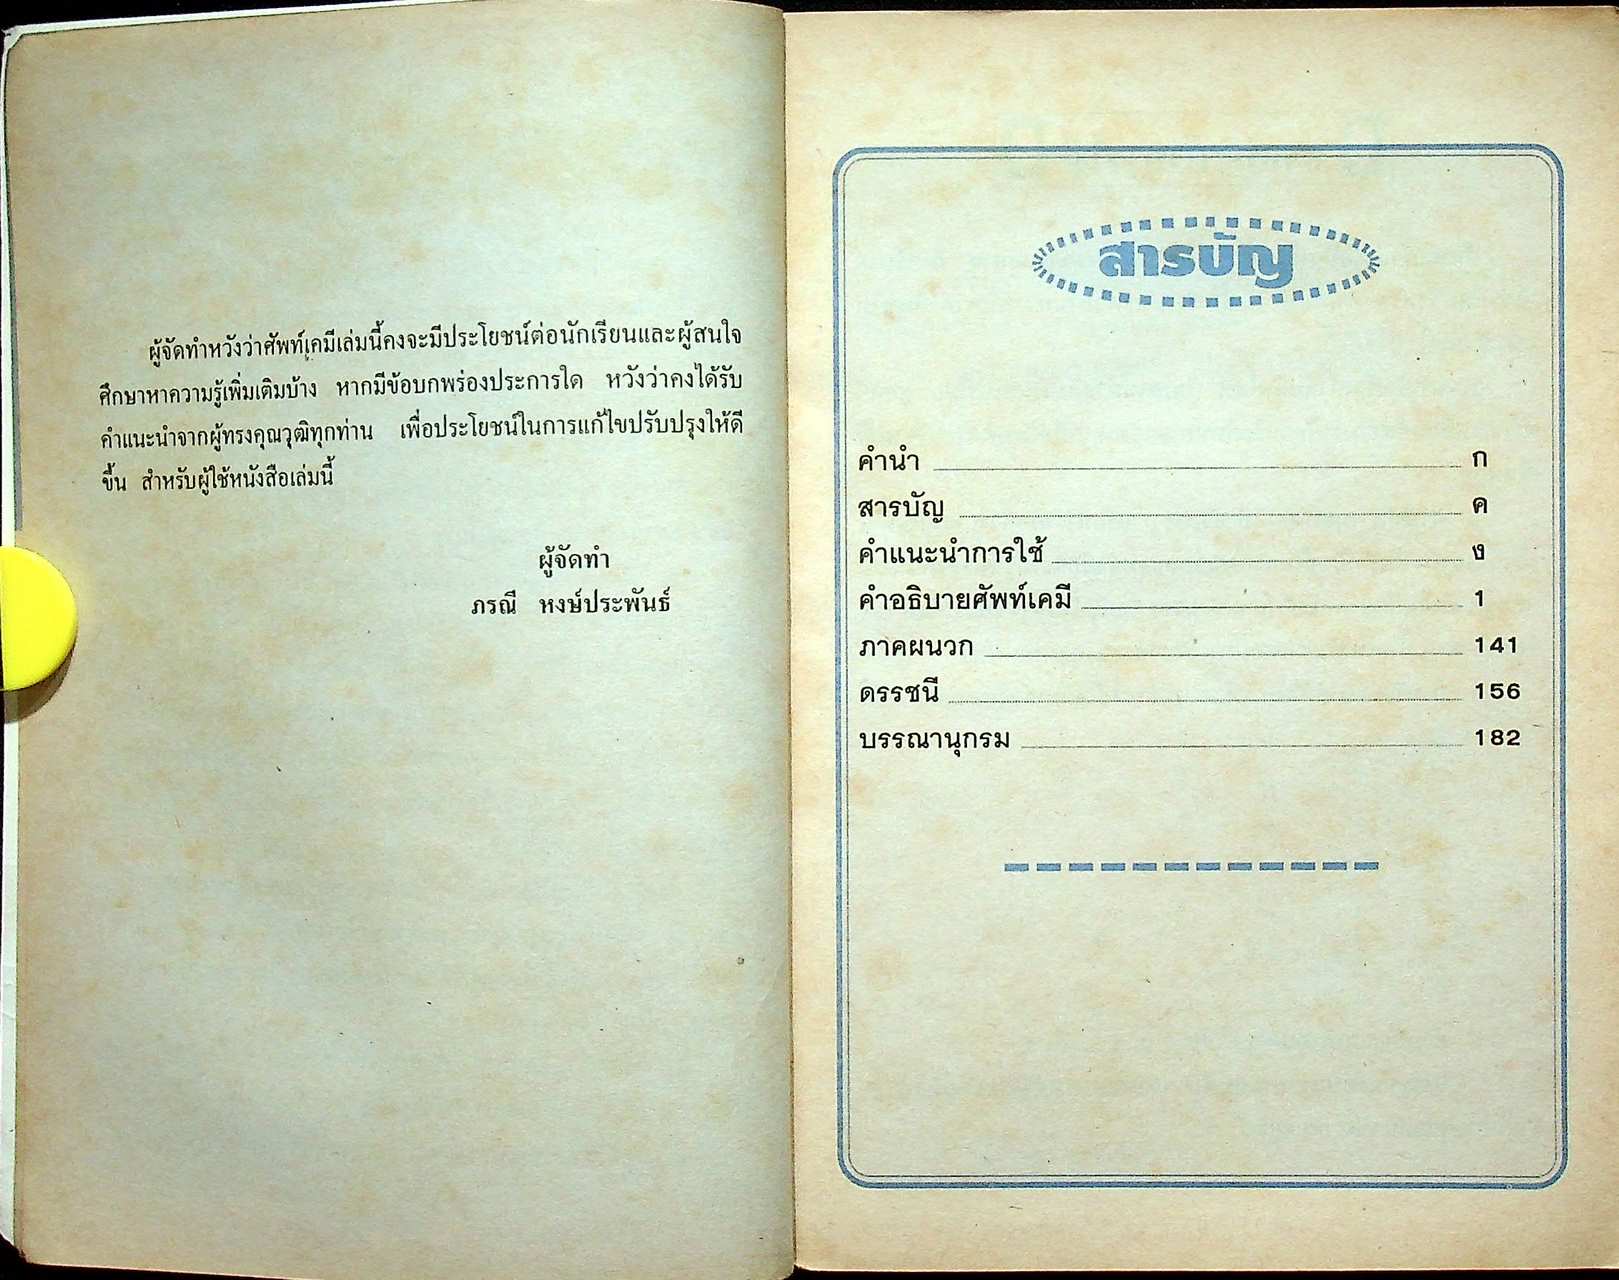 ผู้จัดทำหวังว่าศัพท์เคมีเล่มนี้คงจะมีประโยชน์ต่อนักเรียนและผู้สนใจ
ศึกษาหาความรู้เพิ่มเติมบ้าง หากมีข้อบกพร่องประการใด หวังว่าคงได้รับ
คำแนะนำจากผู้ทรงคุณวุฒิทุกท่าน เพื่อประโยชน์ในการแก้ไขปรับปรุงให้ดี
ขึ้น สำหรับผู้ใช้หนังสือเล่มนี้
ผู้จัดทำ
ภรณี หงษ์ประพันธ์
สารบัญ
คำนำ ก
สารบัญ ค
คำแนะนำการใช้ ง
คำอธิบายศัพท์เคมี 1
ภาคผนวก 141
ดรรชนี 156
บรรณานุกรม 182